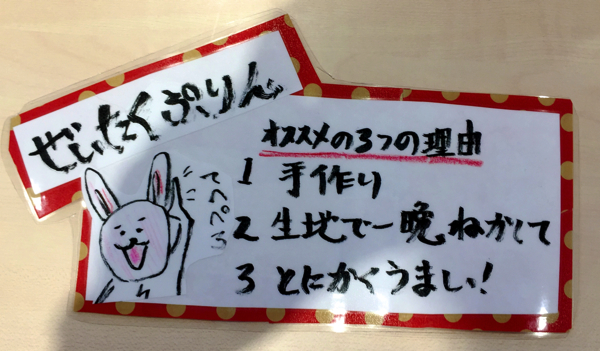 ぜいたくぷりん
オススメの3つの理由
1 手作り
2 生地で一晩ねかして
3 とにかくうまい!